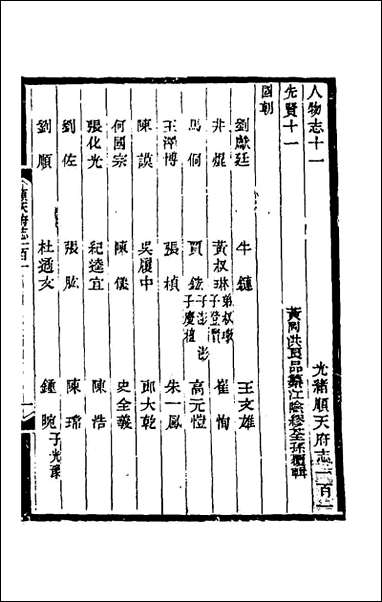 人物志十一 光緒順天府志一百一
先賢十一 黃岡洪良品纂江陰繆荃孫覆輯
國朝
劉獻廷 牛鏈 王文雄
井焜 黃叔琳弟叔璥子登賢 崔恂
馬侗 賈鉉子澎子慶植 高元愷
王澤博 張楨 朱一鳳
陳謨 吳履中 邱大乾
何國宗 陳儀 史全義
張化光 紀逵宜 陳浩
劉佐 張肱 陳瑞
劉順 杜通亥 鍾晼子光豫
順天府志一百一